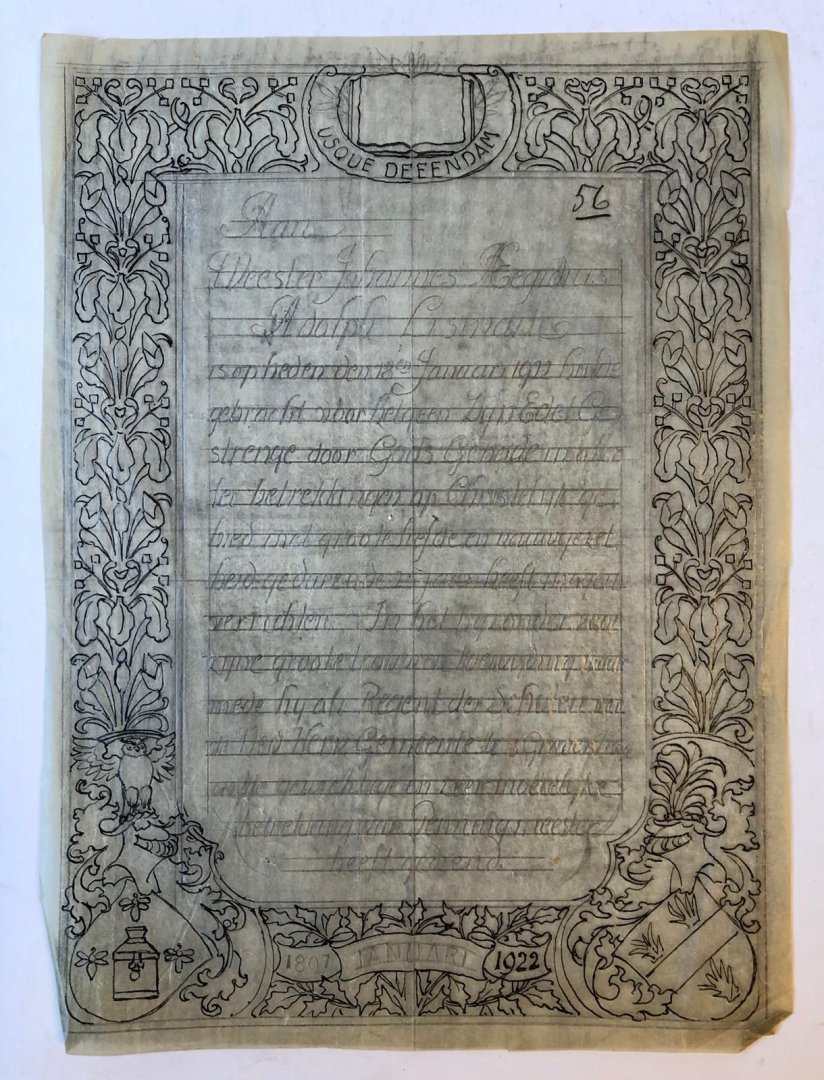 USQUE DEFENDAM
56
Aan
Meester Johannes Aegidius
Adolph Lisman
is op heden den 18en Januari 1922 hulde
gebracht voor hetgeen Zijn Edel Ge
strenge door Gods Genade in
ter betrekkingen op Christelijk ge
bied met groote liefde en nauwgezet
heid gedurende 25 jaar heeft mogen
verrichten. In het bijzonder voor
zijne groote trouw en toewijding waar
mede hij als Regent der Scholen van
de Ned. Herv. Gemeente te 's Gravenhage
gewichtige en zeer moeielijke
betrekking van Penningmeester
heeft
1897 JANUARI 1922